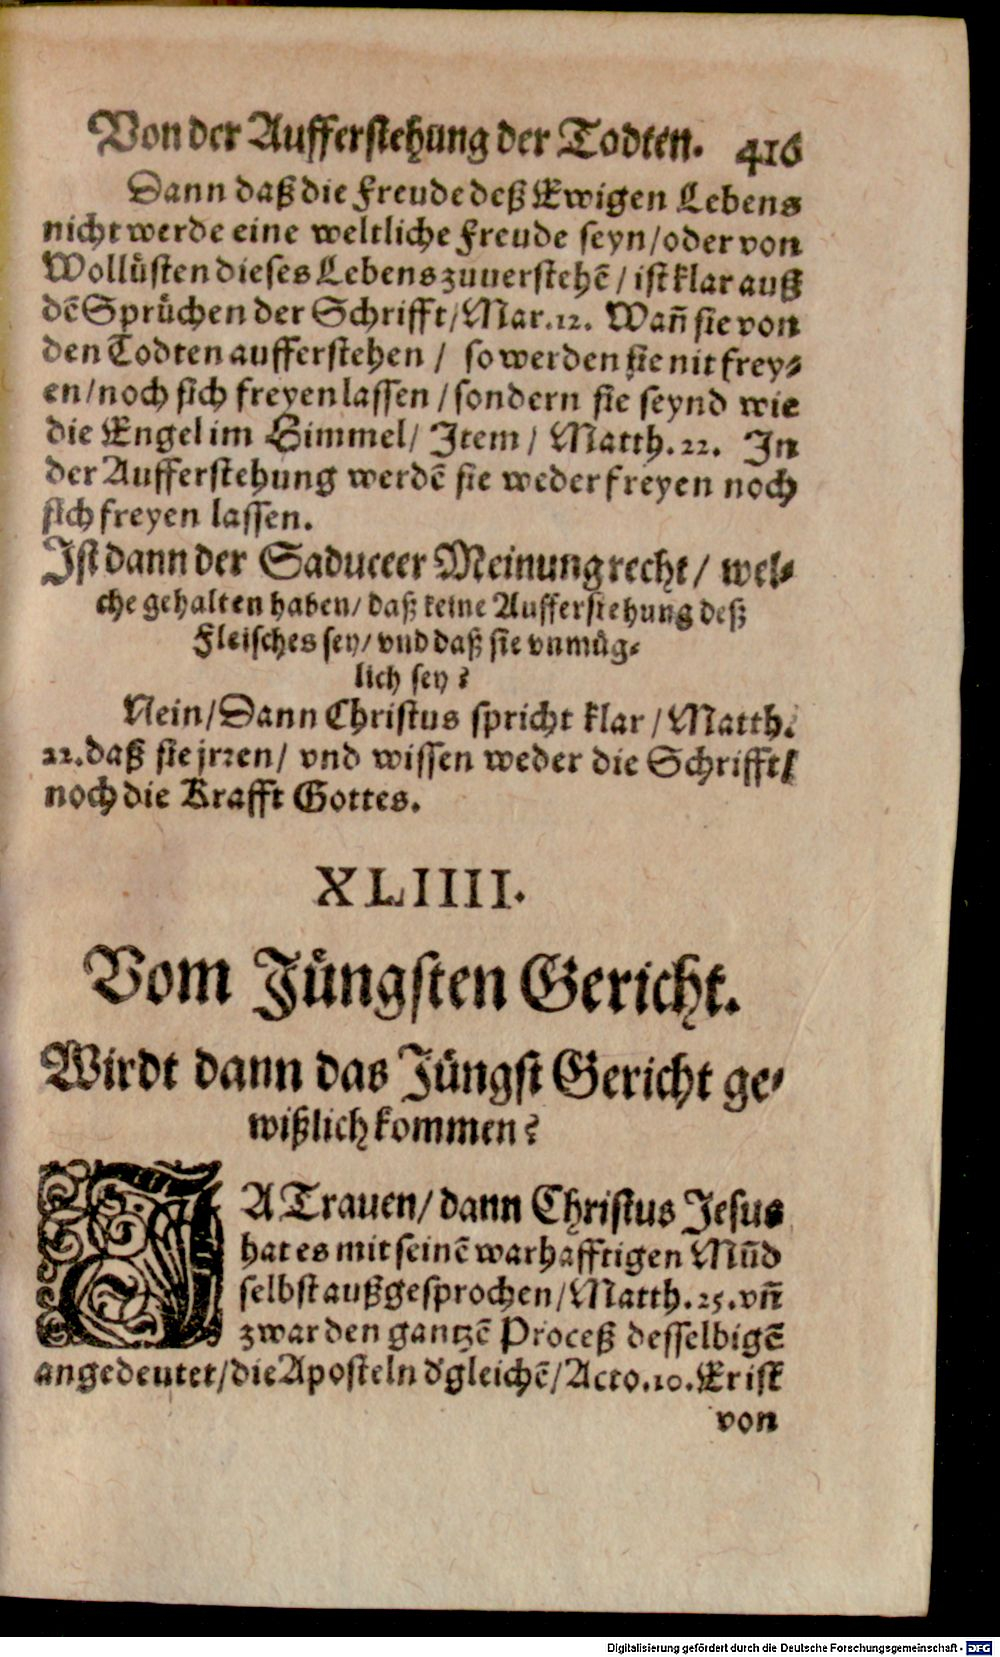 Von der Aufferstehung der Todten. 416
Dann daß die Freude deß Ewigen Lebens
nicht werde eine weltliche Freude seyn/oder von
Wollůsten dieses Lebens zuuerstehē/ ist klar auß
dē Sprůchen der Schrifft/Mar.12. Wañ sie von
den Todten aufferstehen / so werden sie nit frey-
en/noch sich freyen lassen /sondern sie seynd wie
die Engel im Himmel/ Item/ Matth.22. In
der Aufferstehung werdē sie weder freyen noch
sich freyen lassen.
Ist dann der Saduceer Meinung recht/ wel-
che gehalten haben/ daß keine Aufferstehung deß
Fleisches sey/ vnd daß sie vnmůg-
lich sey?
Nein/Dann Christus spricht klar /Matth.
22.daß sie jrren/ vnd wissen weder die Schrifft/
noch die Krafft Gottes.
XLIIII.
Vom Jůngsten Gericht.
Wirdt dann das Jůngst Gericht ge-
wißlich kommen?
JA Trauen/ dann Christus Jesus
hat es mit seinē warhafftigen Mūd
selbst außgesprochen/Matth.25.vñ
zwar den gantzē Proceß desselbigē
angedeutet/die Aposteln d'gleichē/Acto.10.Er ist
von
Digitalisierung gefördert durch die Deutsche Forschungsgemeinschaft - DFG